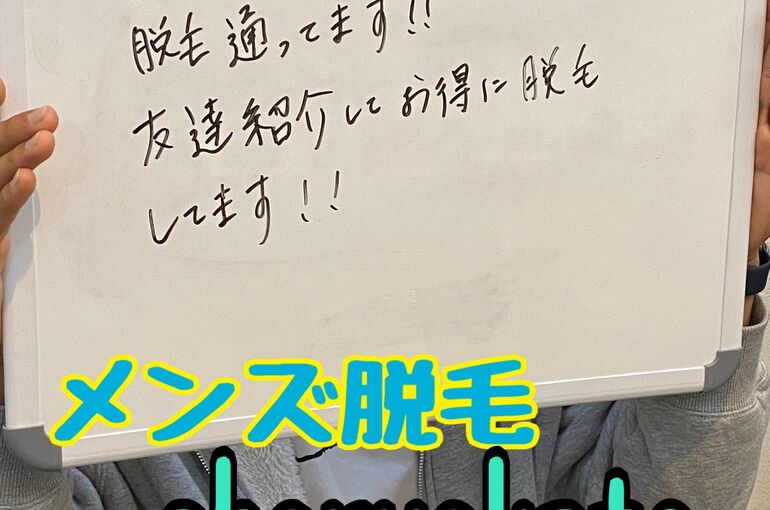 脱毛通ってます!!
友達紹介してお得に脱毛
してます!!
メンズ脱毛